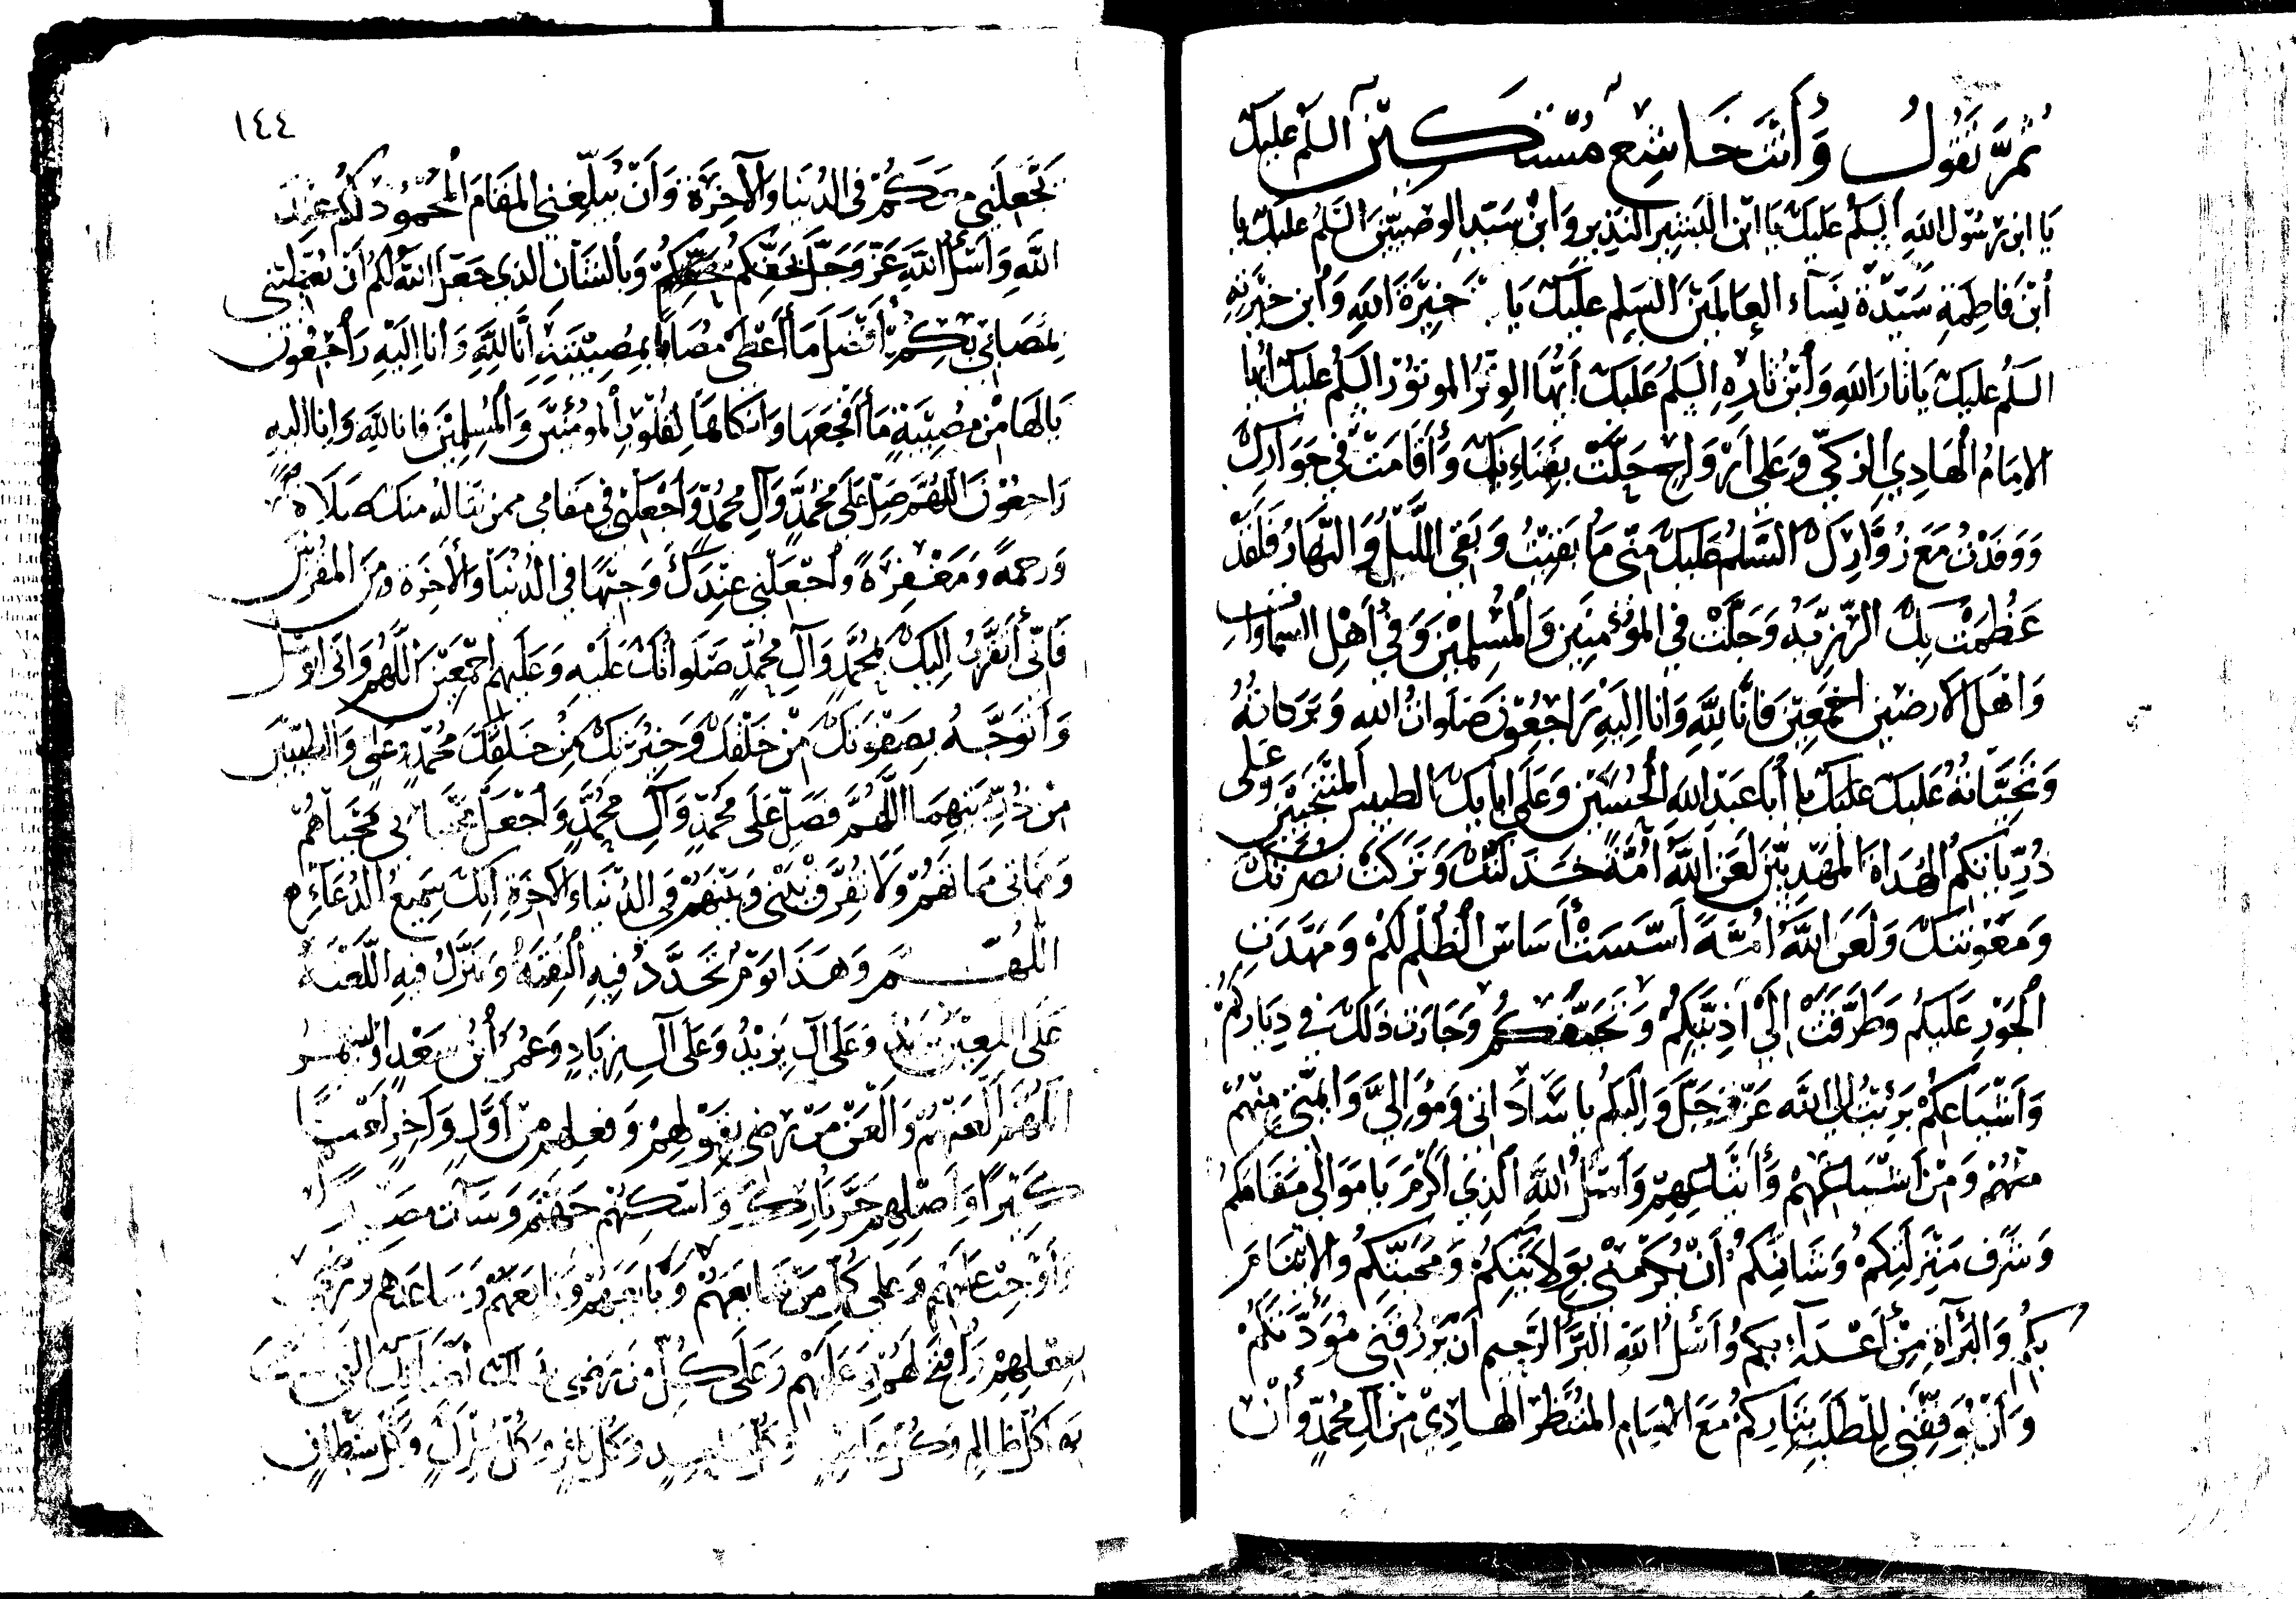 ثُمَّ تَقُولُ وَأَنْتَ خَاشِعٌ مُسْتَكِيْن السلم عليك
يَا ابن رسُول اللهِ السَلم عليكَ يَا ابْنَ البَشِيرِ النَذِيرِ وَابْنَ سَيّدِ الوصِيّيْنَ السَّلم عليكَ يا
أبْنَ فَاطِمَةِ سَيّدَةِ نِسَآءِ العالَمَيْنَ السَلم عليكَ يَا خِيَرَةَ اللهِ وَأبن خِيَرَتِهِ
السَلم عليكَ يَا ثارَ اللهِ وَأبْنَ ثارِهِ السَلم عَلَيكَ أيّها الوِتْرُ الموتُوْرُ السَلم عليك أيّها
الامَامُ الهَادِي الزكِيّ وَعَلى أرْوَاحٍ حَلّتْ بِفِنَاءِكَ وَأقَامَتْ في جوَارِكَ
وَوَفَدَتْ مَعَ زُوَّارِكَ السَّلم عليك مِنّى مَا بَقِيْتُ وَبَقِى اللّيْلُ وَالنّهَارُ فَلَقَدْ
عَظُمَتْ بِكَ الرّزِيّةُ وَجَلَّتْ في المؤمِنِيْنِ وَالمُسْلِمِيْنَ وَفي أهْلِ السَّماواتِ
وَاهْل الارضيْن اجمَعِيْنَ فَانَّا لِلَّهِ وَانا اِليْهِ رَاجعُوْنَ صَلَواتُ الله وَبَرَكاتُهُ
وَتَحِيّاتُهُ عَلَيْكَ عليك يا أبا عَبْدِ اللهِ الحُسَيْنِ وَعَلى ابائِكَ الطيبين المُنْتَجَبِيْنَ وَعَلى
ذُرِّيّاتِكُمُ الهُدَاةَ المَهدِيّيْنَ لَعَنَ اللَّهُ أُمَّةً خَذَلَتْكَ وَتَرَكَتْ نُصْرَتَكَ
وَمَعَوْنَتَكَ وَلَعَنَ اللَّهُ أُمَّةً أسّسَتْ أسَاسَ الظُلْمِ لَكُمْ وَمَهّدَتِ
الجَوْرِ عَلَيكُم وَطَرَّقَتْ اِلى أذِيَّتِكُمْ وَتَحَيُّفِكُمْ وَجَارَت ذَلِكَ في دِيَارِكُمْ
وَأشْيَاعِكُمْ بَرِئتُ اِلى اللَّهِ عَزّ وَجَلّ وَاِلَيكُم يا سَادَاتي وَمَوَالِيَّ وَائِمّتي مِنْهُمْ
مِنْهُمْ وَمِنْ أشْيَاعِهِمْ وَأتْبَاعِهِمْ وَأسْئَلُ اللَّهَ الَّذِي أكْرَمَ يَا مَوَالي مَقَامَكُم
وَشَرَّفَ مَنْزِلَتَكُمْ وَشَانَكُمْ أنْ يُكْرِمَنى بِوِلايَتِكُمْ وَمَحَبّتِكُم وَالايْتِمَامِ
بِكُم وَالبَرَآةِ مِنْ أعْدَآءِ بِكم وَأسْئلُ اللهَ البَرَّ الرَّحِيم أنْ يَرْزُقَنى مَوَدّتَكُمْ
وَأنْ يُوَفِّقَنِي لِلطَلَبِ بِثَارِكُمْ مَعَ الامَام المُنْتَظَرِ الهَادِيْ مِنْ آلِ مُحَمّدٍ وَأنْ
١٤٤
يَجْعَلَنِي مَعَكُمْ في الدُنيَا وَالآخِرَةِ وَأنْ يُبَلِّغِنى المَقَامَ المَحْمُودَ لَكُم عِنْدَ
اللَّهِ وَأسْئَلُ اللهَ عَزّ وَجَلّ بِحَقّكُمْ وَبِالشَانِ الذي جَعَلَ اللَّهُ لَكُم أنْ يُعْطِيَنى
بِمُصَابي بِكُمْ أفْضَلَ مَا أعْطَى مُصَابًا بِمُصِيْبَتِهِ اِنَّا لِلَّهِ وَانا اِلَيْهِ رَاجِعُوْن
يَالَهَا مِنْ مُصِيْبَةٍ مَا أفْجَعَهَا وَانكاهَا لِقُلُوْبِ المؤمِنِيْنَ وَالمُسْلِمِيْنَ فانا لِلَّهِ وَانا اليهِ
رَاجعُوْنَ اللَّهُمَّ صَلِّ عَلَى مُحَمَّدٍ وَآلِ مُحَمَّدٍ وَاجْعَلْنِي في مَقامي ممن تنالهُ منكَ صَلاةٌ
وَرحمةٌ وَمَغْفِرَةٌ وَاجْعَلني عِنْدَكَ وَجِيْهًا في الدُنْيَا وَالآخِرَة وَمِنَ المُقَرَّبِينَ
فَاِنّي أتقَرَّبُ اِلَيكَ بِمُحَمَّدٍ وَآلِ مُحَمّدٍ صَلَواتُكَ عَلَيْهِ وَعَلَيهِم أجْمَعِيْنَ اللَّهُمّ وَانّي اتوسّل
وَأتَوَجّهُ بِصَفْوَتِكَ مِنْ خَلْقِكَ وَخِيَرَتِكَ مِنْ خَلْقِكَ مُحَمّدٍ وَعَلِيٍ وَالطيّبِيْنَ
مِنْ ذُرِّيّتِهِمَا اللَّهُمَّ فَصَلِّ عَلَى مُحَمّدٍ وَآلِ مُحَمَّدٍ وَاجْعَلْ مَحْيَايَ مَحْيَاهُمْ
وَمَماتى مماتَهُمْ وَلَا تُفَرِّقْ بَيْنى وَبَيْنَهُمْ في الدُنْيَا وَالآخِرَةِ اِنّكَ سَمِيعُ الدُعَاءِ
اللَّهُمَّ وَهَذَا يَوْمٌ تُجَدَّدُ فِيهِ النِقْمَةُ وَتَنْزِلُ فِيهِ اللَّعْنَةُ
عَلَى اللعِيْنِ يَزِيْدَ وَعَلَى آلِ يَزِيْدٍ وَعَلَى آلِ زِيَادٍ وَعُمَرَ أبْنُ سَعْدٍ والشمر
اللَّهُمَّ الْعَنْهُمْ وَالْعَنْ مَنْ رَضِى بِقَوْلِهِمْ وَفِعْلِهِمْ مِنْ أوَّلٍ وَآخِرٍ لَعْنًا
كَثِيْرًا وَاصْلِهِم حَرَّ نَارِكَ وَاسْكِنْهُمْ جَهَنَّمَ وَسَآءَت مَصِيرًا
وَأوْجِبْ عَلَيْهِم وَعَلى كُلِّ مَنْ شَايَعَهُمْ وَبَايَعَهُمْ وَتَابَعَهُمْ وَسَاعَدَهم وَرَضِيَ
بِفِعْلِهِمْ وَافْتَحْ لَهُمْ وَعَلَيْهِمْ وَعَلَى كُلِّ مَن رَضِى
كُلّ ظَالِمٍ وَكُلّ وَكُلّ وَكُلّ وَكُلّ شَيْطَانٍ